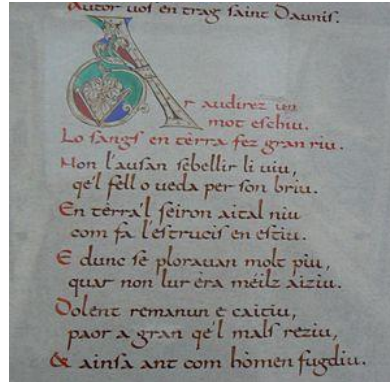 Autor vos en trag saint Daunis.
Ar audirez un
mot eschiu.
Lo sangs en tèrra fez gran riu.
Non l'ausan sebellir li uiu,
qe'l fell o ueda per son briu.
En tèrra'l feiron aital niu
com fa l'estrucis en estiu.
E dunc se plorauan molt piu,
quar non lur èra méilz aiziu.
Dolent remanun e caitiu,
paor a gran qe'l mals reziu,
& ainsa ant com hòmen fugdiu.